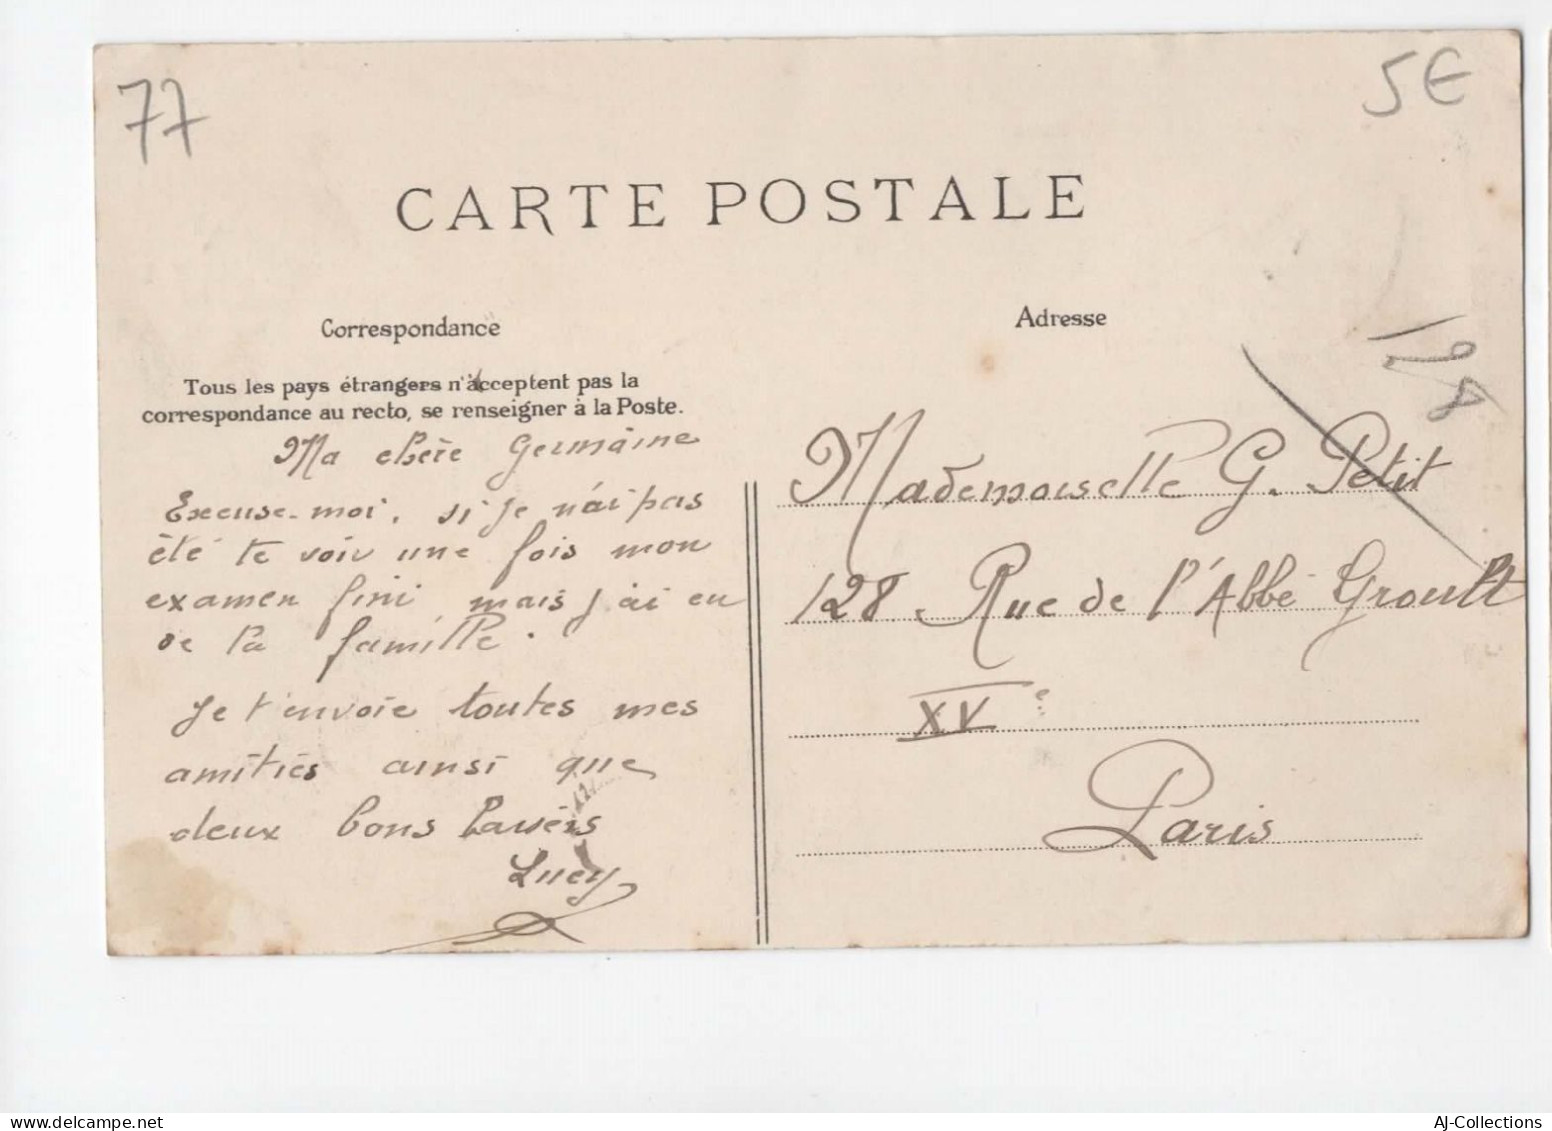 77
5€
CARTE POSTALE
Correspondance
Adresse
Tous les pays étrangers n'acceptent pas la
correspondance au recto, se renseigner à la Poste.
128
Ma chère Germaine
Excuse-moi, si je n'ai pas
été te voir une fois mon
examen fini mais j'ai eu
de la famille.
Je t'envoie toutes mes
amitiés ainsi que
deux bons baisers
Lucy
Mademoiselle G. Petit
128 Rue de l'Abbé Groult
XVe
Paris
delcampe.net
AJ-Collections